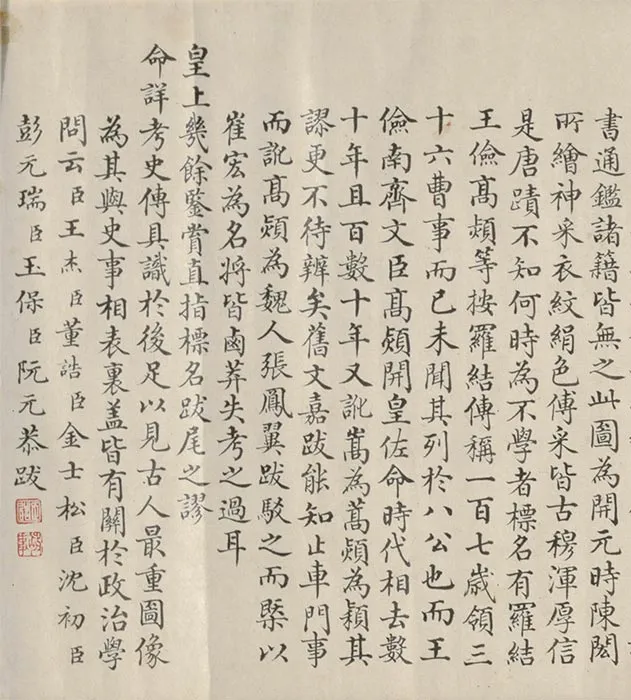 書通鑑諸籍皆無之此圖為開元時陳閎
所繪神采衣紋絹色傅采皆古穆渾厚信
是唐蹟不知何時為不學者標名有羅結
王儉高熲等按羅結傳稱一百七歲領三
十六曹事而已未聞其列於八公也而王
儉南齊文臣高熲開皇佐命時代相去數
十年且百數十年又訛嵩為蒿熲為穎其
謬更不待辨矣舊文嘉跋能知止車門事
而訛高熲為魏人張鳳翼跋駁之而槩以
崔宏為名將皆鹵莽失考之過耳
皇上幾餘鑒賞直指標名跋尾之謬
命詳考史傳具識於後足以見古人最重圖像
為其與史事相表裏盖皆有關於政治學
問云臣王杰臣董誥臣金士松臣沈初臣
彭元瑞臣玉保臣阮元恭跋